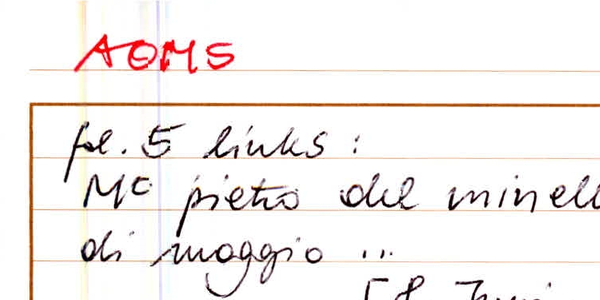 AOMS
fol. 5 links:
Mo pietro del minell
di maggio ...